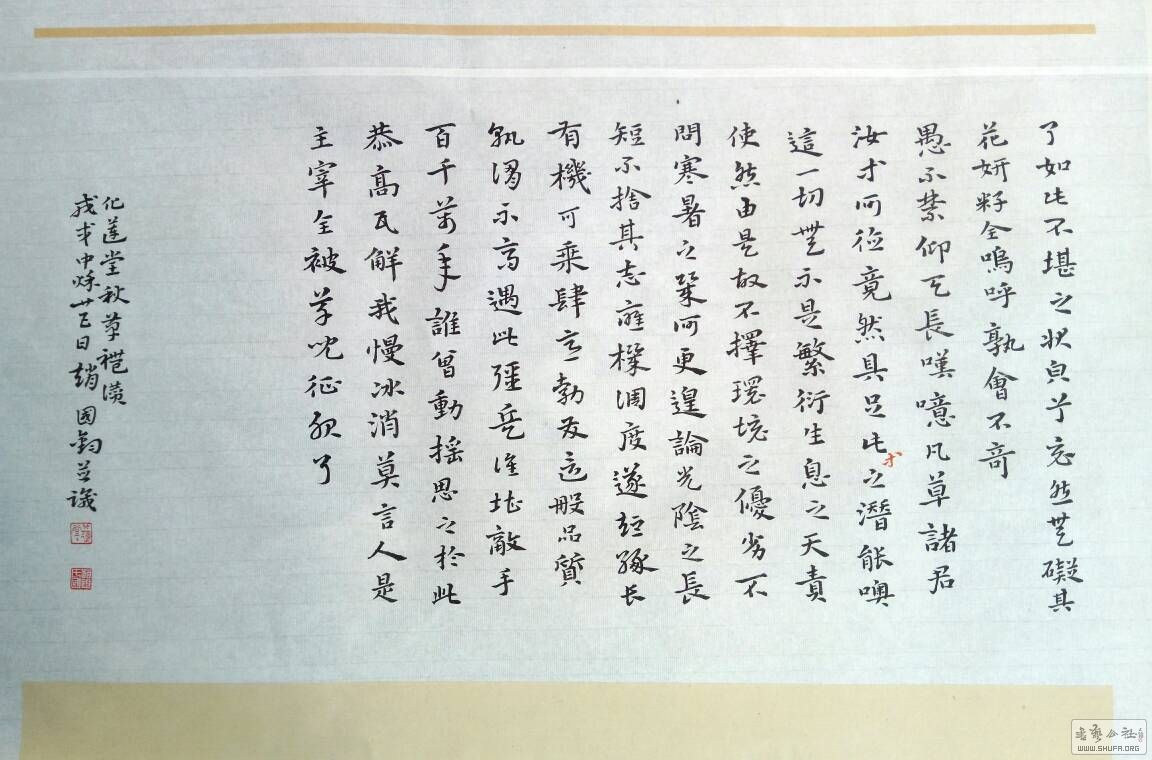 了如此不堪之狀貞下忘然無礙其
花妍籽全嗚呼孰會不奇
愚不禁仰天長嘆噫凡草諸君
汝才何從竟然具足此之潛能噢
才
這一切無不是繁衍生息之天責
使然由是故不擇環境之優劣不
問寒暑之何更遑論光陰之長
短不捨其志應機調度遂短隨长
有機可乘肆意勃发這般品質
孰謂不高遇此彊兵谁堪敵手
百千萬年誰曾動搖思之於此
恭高瓦解我慢冰消莫言人是
主宰全被草兒征服了
化蓮堂秋草禮讚
戊戌中秋廿三日趙國鈞並識
書藝公社
WWW.SHUFA.ORG